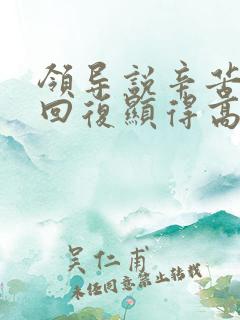 領导説辛苦
回復顯得高
吴仁甫
未经同意禁止转载